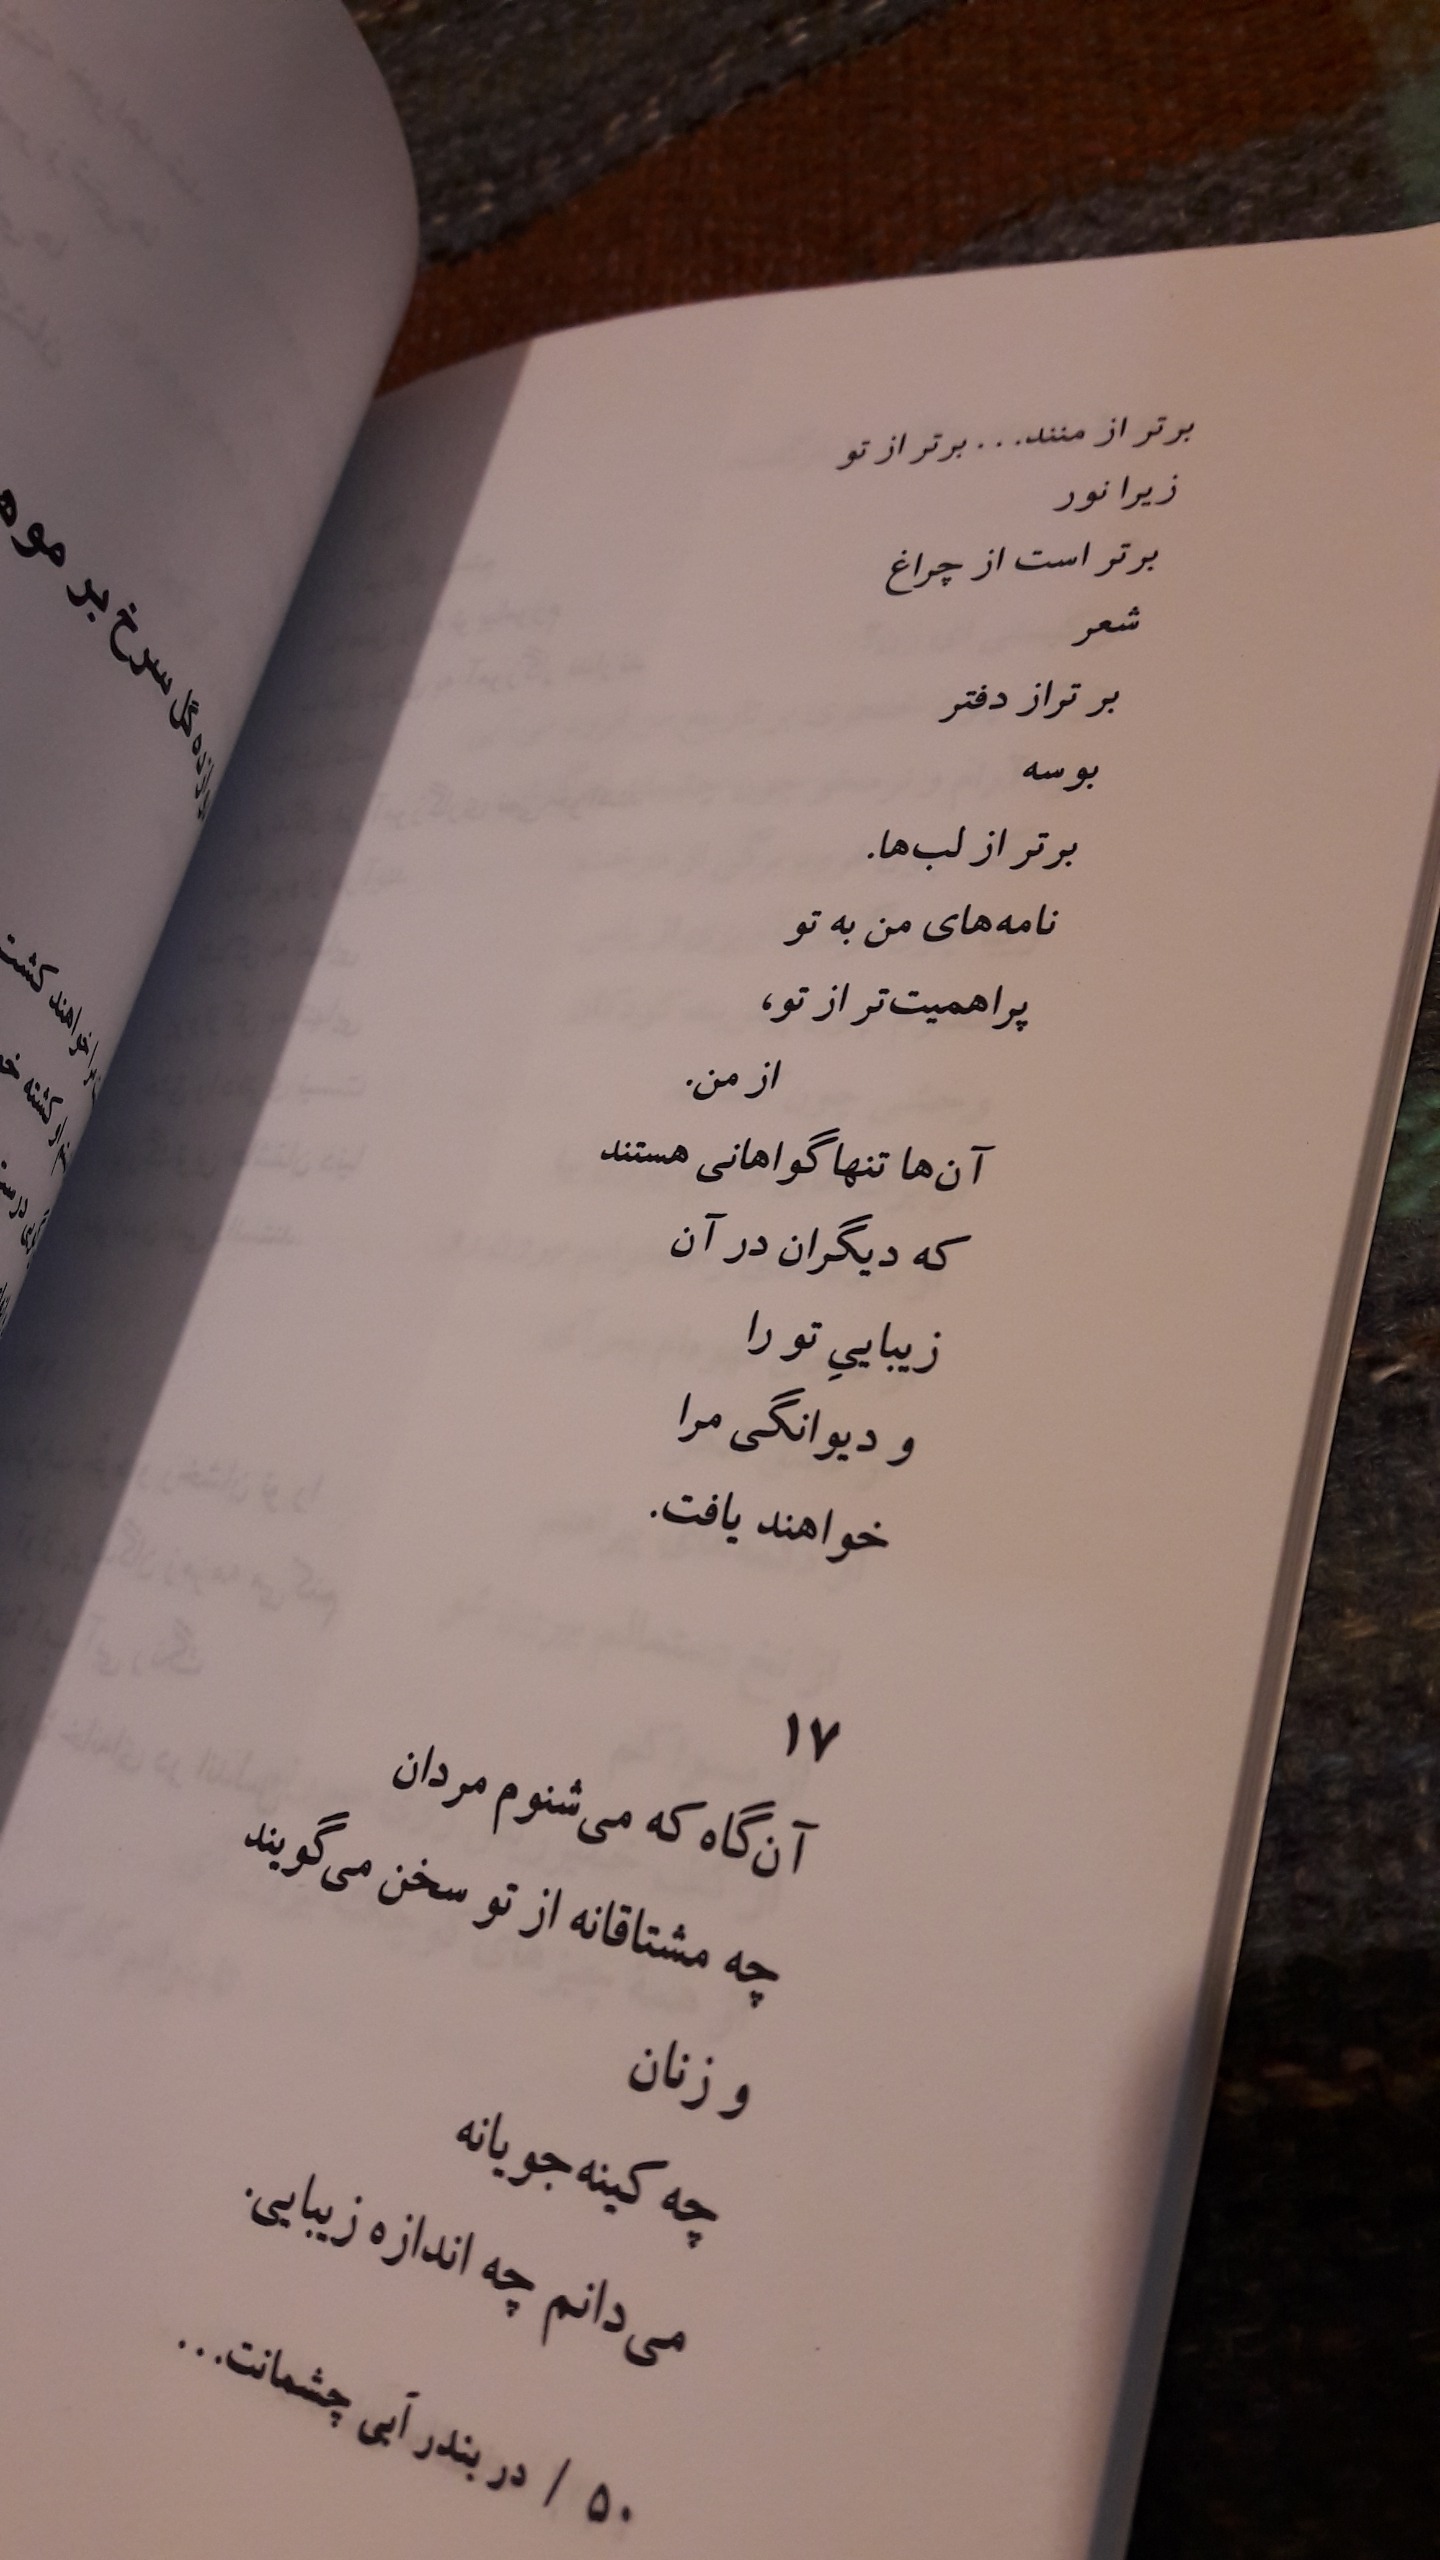 برتر از منند... برتر از تو
زیرا نور
برتر است از چراغ
شعر
برتر از دفتر
بوسه
برتر از لب‌ها.
نامه‌های من به تو
پراهمیت‌تر از تو،
از من.
آن‌ها تنها گواهانی هستند
که دیگران در آن
زیباییِ تو را
و دیوانگی مرا
خواهند یافت.
۱۷
آن‌گاه که می‌شنوم مردان
چه مشتاقانه از تو سخن می‌گویند
و زنان
چه کینه‌جویانه
می‌دانم چه اندازه زیبایی.
۵۰ / در بندر آبی چشمانت...
گل سرخ بر
خواهند کشت
کشته